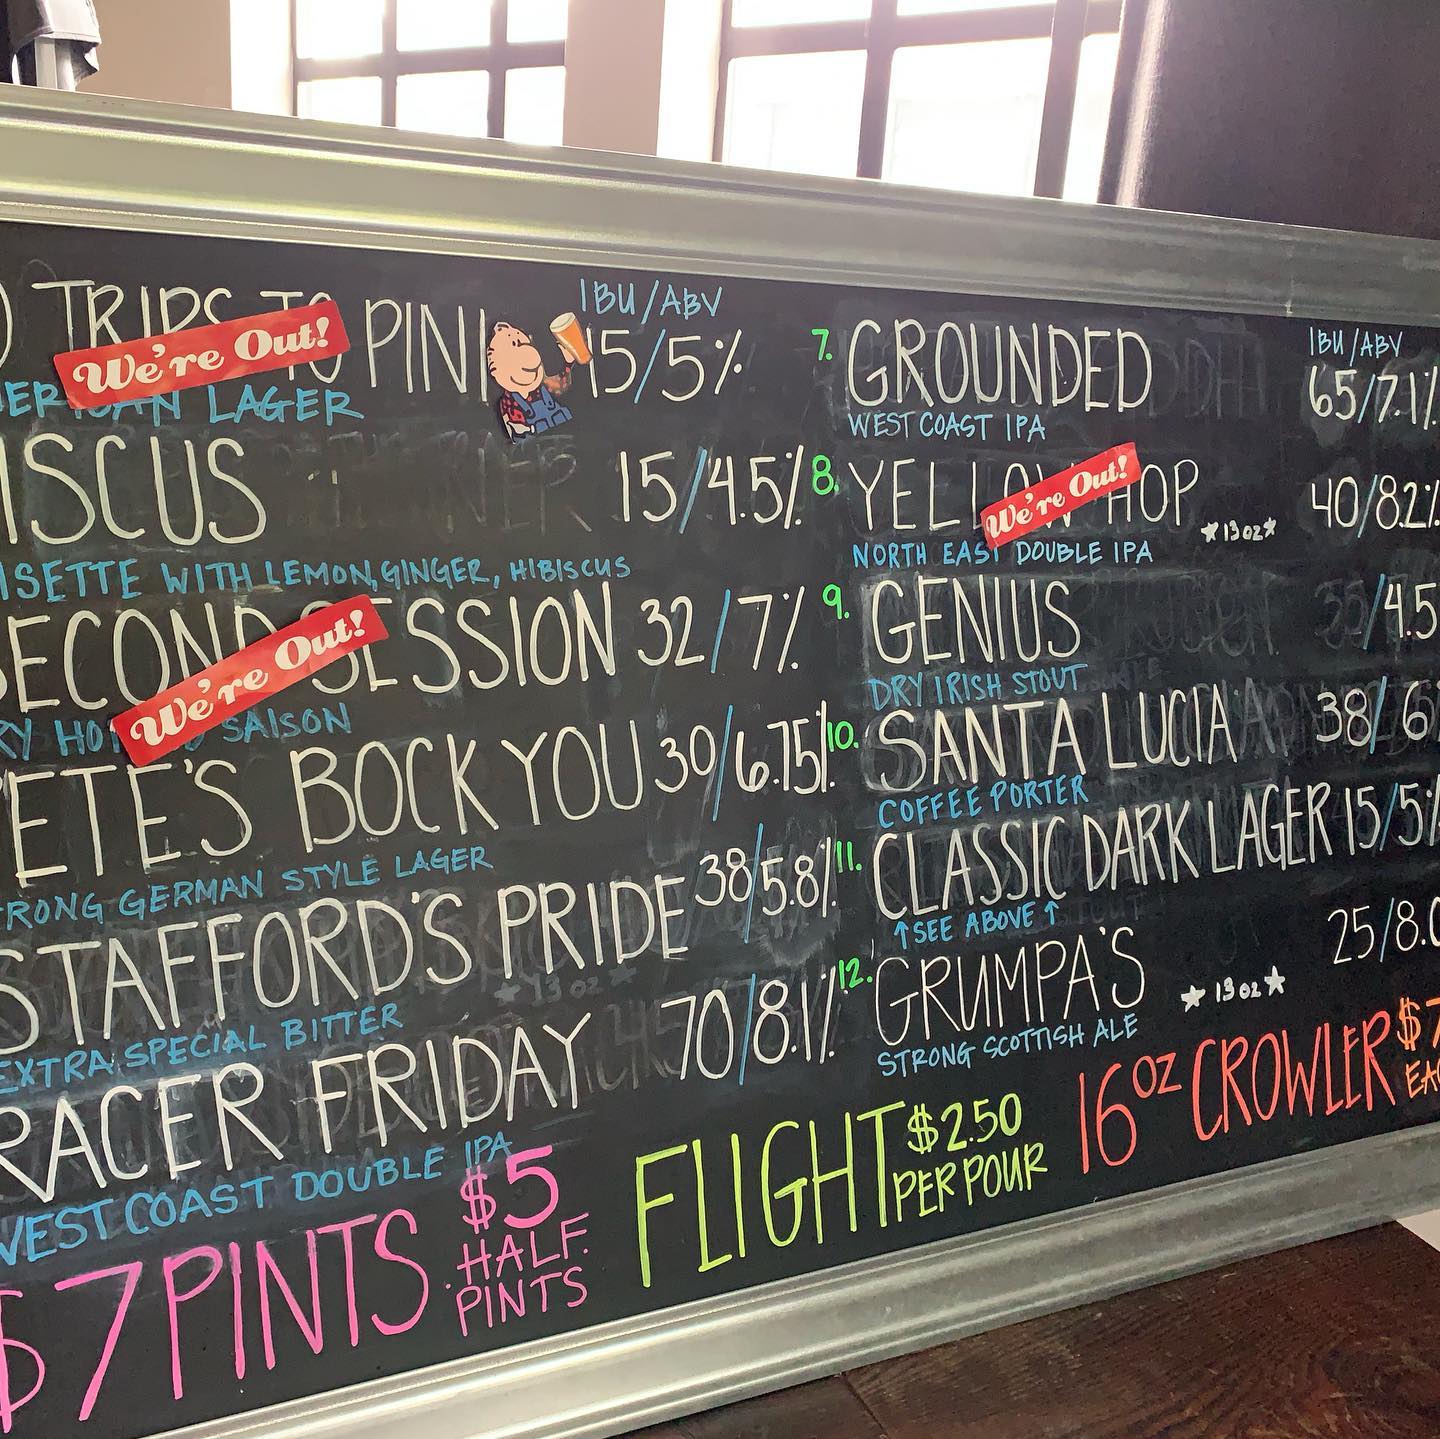 TRIPS TO PINI
We're Out!
IBU/ABV
15/5%
LAGER
ISCUS
15/4.5%
WITH LEMON, GINGER, HIBISCUS
SECOND SESSION
We're Out!
32/7%
SAISON
PETE'S BOCK YOU
30/6.75%
STRONG GERMAN STYLE LAGER
STAFFORD'S PRIDE
38/5.8%
EXTRA SPECIAL BITTER
RACER FRIDAY
70/8.1%
WEST COAST DOUBLE IPA
7. GROUNDED
IBU/ABV
65/7.1%
WEST COAST IPA
8. YELLOW HOP
We're Out!
★13oz★
40/8.2%
NORTH EAST DOUBLE IPA
9. GENIUS
/4.5
DRY IRISH STOUT
10. SANTA LUCIA
38/6
COFFEE PORTER
11. CLASSIC DARK LAGER
15/5%
↑SEE ABOVE↑
12. GRUMPA'S
★13oz★
25/8.0
STRONG SCOTTISH ALE
$7 PINTS
$5
HALF
PINTS
FLIGHT
$2.50
PER POUR
16oz CROWLER
$7